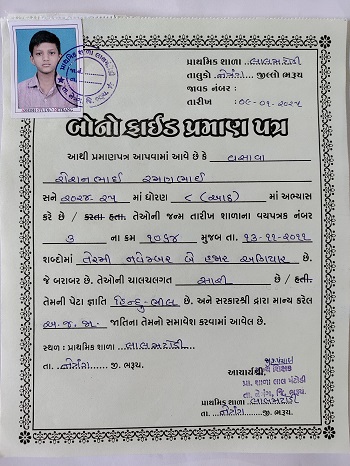 પ્રાથમિક શાળા લાલમટોડી
તાલુકો નેત્રંગ જીલ્લો ભરૂચ
જાવક નંબર
તારીખ ૦૯-૦૧-૨૦૨૫
બોનોફાઈડ પ્રમાણ પત્ર
આથી પ્રમાણપત્ર આપવામાં આવે છે કે વસાવા
રોશનભાઈ રમણભાઈ
સને ૨૦૨૪-૨૫ માં ધોરણ ૮ (આઠ) માં અભ્યાસ
કરે છે / કરતા હતા. તેઓની જન્મ તારીખ શાળાના વયપત્રક નંબર
૩ ના ક્રમ ૧૦૬૪ મુજબ તા. ૧૩-૧૧-૨૦૧૧
શબ્દોમાં તેરમી નવેમ્બર બે હજાર અગિયાર છે.
જે બરાબર છે. તેઓની ચાલચલગત સારી છે / હતી.
તેમની પેટા જ્ઞાતિ હિન્દુ-ભીલ છે. અને સરકારશ્રી દ્વારા માન્ય કરેલ
અ.જ.જા. જાતિના તેમનો સમાવેશ કરવામાં આવેલ છે.
સ્થળ : પ્રાથમિક શાળા લાલમટોડી
તા. નેત્રંગ જી. ભરૂચ.
આચાર્યશ્રી
મુખ્ય શિક્ષક
પ્રા. શાળા લાલ મંટોડી
તા. નેત્રંગ, જિ. ભરૂચ.
પ્રાથમિક શાળા લાલમટોડી
તા. નેત્રંગ જી. ભરૂચ.